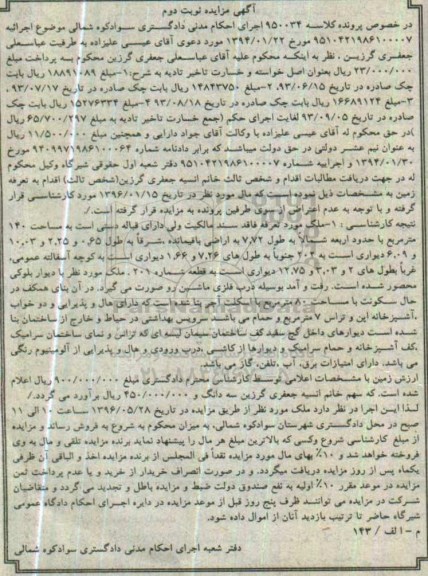 آگهی مزایده نوبت دوم
در خصوص پرونده کلاسه ۹۵۰۰۳۴ اجرای احکام مدنی دادگستری سوادکوه شمالی موضوع اجرائیه
۹۵۱۰۴۲۱۹۸۶۱۰۰۰۰۷ مورخ ۱۳۹۴/۰۱/۲۲ مورد دعوی آقای عیسی علیزاده به طرفیت عباسعلی
جعفری گرزین . نظر به اینکه محکوم علیه آقای عباسعلی جعفری گرزین محکوم به پرداخت مبلغ
۲۳/۰۰۰/۰۰۰ ریال بعنوان اصل خواسته و خسارت تاخیر تادیه به شرح:۱-مبلغ ۱۸۸۹۱۰۸۹ ریال بابت
چک صادره در تاریخ ۹۳/۰۶/۱۵. ۲-مبلغ ۱۴۸۴۳۷۵۰ ریال بابت چک صادره در تاریخ ۹۳/۰۷/۱۷.
۳-مبلغ ۱۶۶۸۹۱۲۴ ریال بابت چک صادره در تاریخ ۹۳/۰۸/۱۸ ۴-مبلغ ۱۵۲۷۶۳۳۴ ریال بابت چک
صادره در تاریخ ۹۳/۰۹/۰۵ لغایت اجرای حکم (جمع خسارت تاخیر تادیه به مبلغ ۶۵/۷۰۰/۲۹۷ ریال
)در حق محکوم له آقای عیسی علیزاده با وکالت آقای جواد دارایی و همچنین مبلغ ۱۱/۵۰۰/۰۰۰ ریال
به عنوان نیم عشر دولتی در حق دولت میباشد که برابر دادنامه شماره ۹۴۰۹۹۷۱۹۸۶۱۰۰۰۶۴ مورخ
۱۳۹۴/۰۱/۳۰ و اجراییه شماره ۹۵۱۰۴۲۱۹۸۶۱۰۰۰۰۷ دفتر شعبه اول حقوقی شیرگاه وکیل محکوم
له در جهت دریافت مطالبات اقدام و شخص ثالث خانم انسیه جعفری گرزین(شخص ثالث) اقدام به تعرفه
زمین به مشخصات ذیل نموده است که مال مورد نظر در تاریخ ۱۳۹۶/۰۱/۱۵ مورد کارشناسی قرار
گرفته و با توجه به عدم اعتراض از سوی طرفین پرونده به مزایده قرار گرفته است./
نتیجه کارشناسی : ۱-ملک مورد تعرفه فاقد سند مالکیت ولی دارای قباله دستی است به مساحت ۱۴۰
مترمربع با حدود اربعه شمالا به طول ۷.۷۲ به اراضی باقیمانده .شرقاً به طول ۰.۶۵ و ۲.۲۵ و ۱۰.۰۳
و ۶.۰۹ دیواری است به ۲۰۲ جنوبا به طول های ۷.۲۶ و ۱.۶۶ دیواری است به کوچه آسفالته عمومی.
غرباً بطول های ۲ و ۳.۰۳ و ۱۲.۷۵ دیواری است به قطعه شماره ۲۰۱ . ملک مورد نظر با دیوار بلوکی
محصور شده است. رفت و آمد بوسیله درب فلزی ماشین رو صورت می گیرد. در آن بنای همکف در
حال سکونت با مساحت ۸۰ مترمربع با اسکلت آجر بنا شده است که دارای هال و پذیرایی و دو خواب
.آشپزخانه اپن و تراس ۷ مترمربع و حمام می باشد. سرویس بهداشتی در حیاط و خارج از ساختمان بنا
شده است دیوارهای داخل گچ سفید کف ساختمان سیمان لیسه ای که تراس و نمای ساختمان سرامیک
.کف آشپزخانه و حمام سرامیک و دیوارها از کاشی .درب ورودی و هال و پذیرایی از آلومینیوم رنگی
می باشد. دارای امتیازات برق. آب .تلفن. گاز می باشد.
ارزش زمین با مشخصات اعلامی توسط کارشناس محترم دادگستری مبلغ ۹۰۰/۰۰۰/۰۰۰ ریال اعلام
شده است. که سهم خانم انسیه جعفری گرزین سه دانگ و ۴۵۰/۰۰۰/۰۰۰ ریال برآورد می گردد./
لذا این اجرا در نظر دارد ملک مورد نظر از طریق مزایده در تاریخ ۱۳۹۶/۰۵/۲۸ ساعت ۱۰ الی ۱۱
صبح در محل دادگستری شهرستان سوادکوه شمالی. به میزان محکوم به شروع به فروش رساند و مزایده
از مبلغ کارشناسی شروع وکسی که بالاترین مبلغ هر مال را پیشنهاد نماید برنده مزایده تلقی و مال به وی
فروخته خواهد شد و ۱۰٪ بهای مال مورد مزایده نقداً فی المجلس از برنده مزایده اخذ و الباقی آن ظرفی
یکماه پس از روز مزایده دریافت میگردد. و در صورت انصراف خریدار از خرید و یا عدم پرداخت ثمن
مزایده در موعد مقرر ۱۰٪ اولیه به نفع صندوق دولت ضبط و مزایده باطل و تجدید می گردد و متقاضیان
شرکت در مزایده می توانند ظرف پنج روز قبل از موعد مزایده در دایره اجرای احکام دادگاه عمومی
شیرگاه حاضر تا ترتیب بازدید آنان از اموال داده شود.
م -الف / ۱۴۳
دفتر شعبه اجرای احکام مدنی دادگستری سوادکوه شمالی